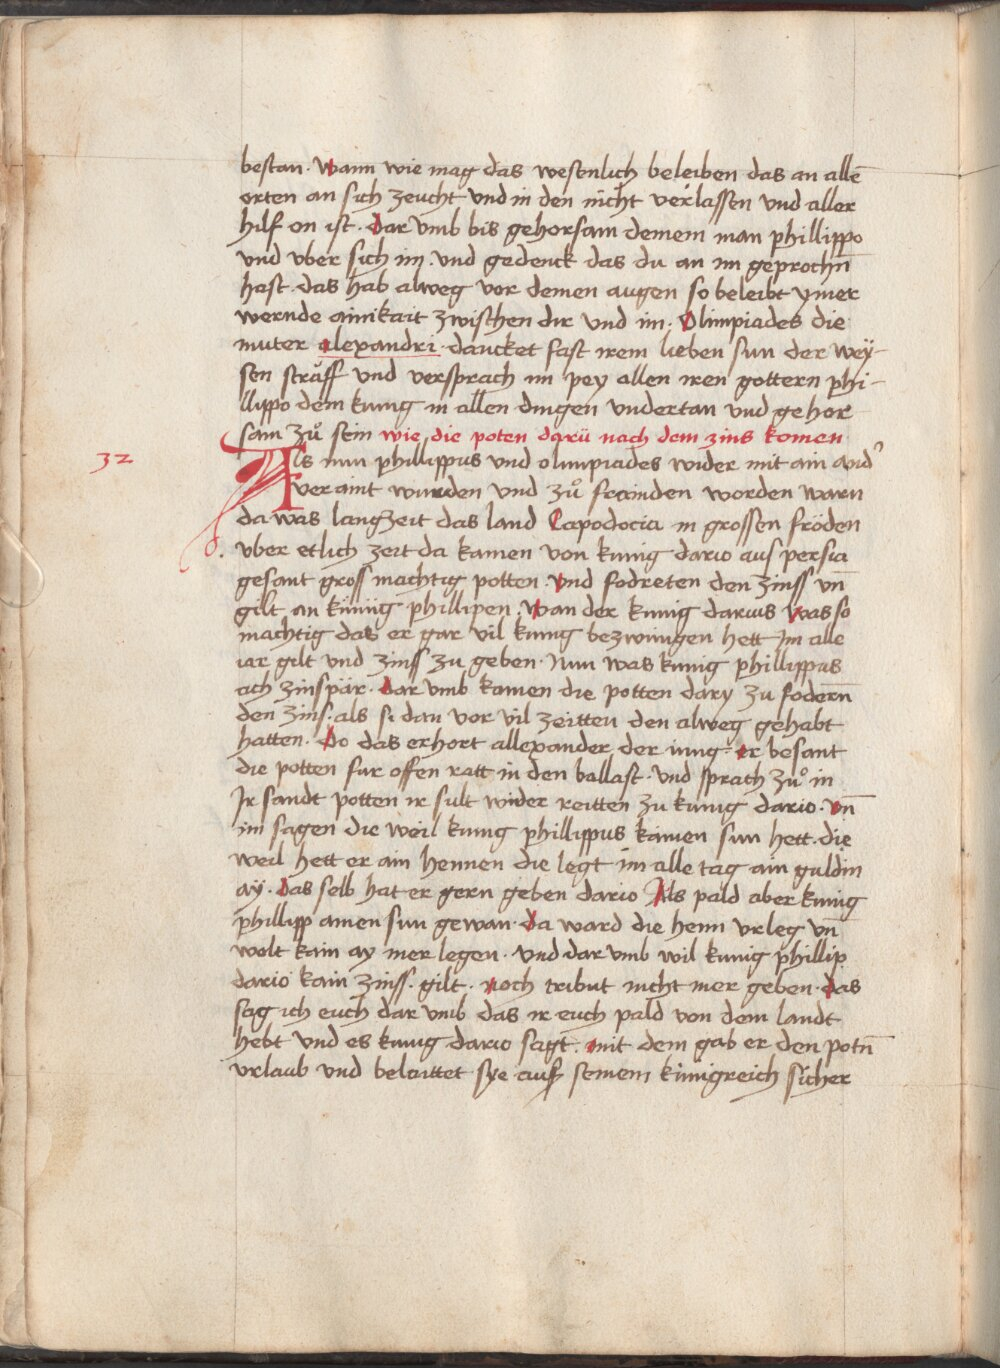 bestan. Wann wie mag das wesenlich beleiben das an allē
orten an sich zeucht vnd in den nicht verlassen vnd aller
hilf on ist. Dar vmb bis gehorsam deinem man phillippo
vnd vber sich im. vnd gedenck das du an im geprochn̄
hast. das hab alweg vor deinen augen so beleibt ymer
wernde ainikait zwischen dir vnd im. Olimpiades die
muter alexandri. dancket fast irem lieben sun der wey-
sen straff vnd versprach im pey allen iren gottern phi-
llippo dem kunig in allen dingen vndertan vnd gehor
sam zů sein wie die poten darü nach dem zins komen
32
Als nun phillippus vnd olimpiades wider mit ain and'
veraint wurden vnd zů freinden worden warn
da was langzeit das land Capodocia in grossen fröden
vber etlich zeit da kamen von kunig dario aus persia
gesant gros machtig potten. Vnd fodreten den zinss vn̄
gilt an künig phillipen. Wan der kunig darius was so
machtig das er gar vil kunig bezwungen hett Im alle
iar gilt vnd zinss zu geben. Nun was kunig phillippus
ach zinspär. Dar vmb kamen die potten dary zu fodern̄
den zins. als si dan vor vil zeitten den alweg gehabt
hatten. Do das erhort allexander der iung. er besant
die potten fur offen ratt in den ballast. vnd sprach zů in
Ir sandt potten ir sult wider reitten zu kunig dario. vn̄
im sagen die weil kunig phillippus kainen sun hett. die
weil hett er ain hennen die legt im alle tag ain guldin
ay. Das selb hat er gern geben dario Als pald aber kunig
phillipp ainen sun gewan. da ward die henn vrleg vn̄
wolt kain ay mer legen. vnd dar vmb wil kunig phillip
dario kain zinss. gilt. noch tribut nicht mer geben. das
sag ich euch dar vmb das ir euch pald von dem landt
hebt vnd es kunig dario sagt. mit dem gab er den potn̄
vrlaub vnd belaittet sye aus seinem künigreich sicher